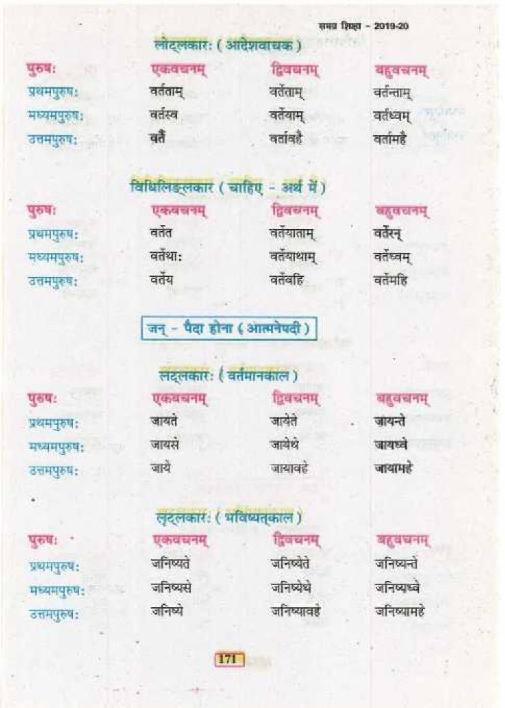 समग्र शिक्षा - 2019-20
लोट्लकारः ( आदेशवाचक )
पुरुषः एकवचनम् द्विवचनम् बहुवचनम्
प्रथमपुरुषः वर्तताम् वर्तेताम् वर्तन्ताम्
मध्यमपुरुषः वर्तस्व वर्तेथाम् वर्तध्वम्
उत्तमपुरुषः वर्तै वर्तावहै वर्तामहै
विधिलिङ्लकार ( चाहिए - अर्थ में )
पुरुषः एकवचनम् द्विवचनम् बहुवचनम्
प्रथमपुरुषः वर्तेत वर्तेयाताम् वर्तेरन्
मध्यमपुरुषः वर्तेथाः वर्तेयाथाम् वर्तेध्वम्
उत्तमपुरुषः वर्तेय वर्तेवहि वर्तेमहि
जन् - पैदा होना ( आत्मनेपदी )
लट्लकारः ( वर्तमानकाल )
पुरुषः एकवचनम् द्विवचनम् बहुवचनम्
प्रथमपुरुषः जायते जायेते जायन्ते
मध्यमपुरुषः जायसे जायेथे जायध्वे
उत्तमपुरुषः जाये जायावहे जायामहे
लृट्लकारः ( भविष्यत्काल )
पुरुषः एकवचनम् द्विवचनम् बहुवचनम्
प्रथमपुरुषः जनिष्यते जनिष्येते जनिष्यन्ते
मध्यमपुरुषः जनिष्यसे जनिष्येथे जनिष्यध्वे
उत्तमपुरुषः जनिष्ये जनिष्यावहे जनिष्यामहे
171